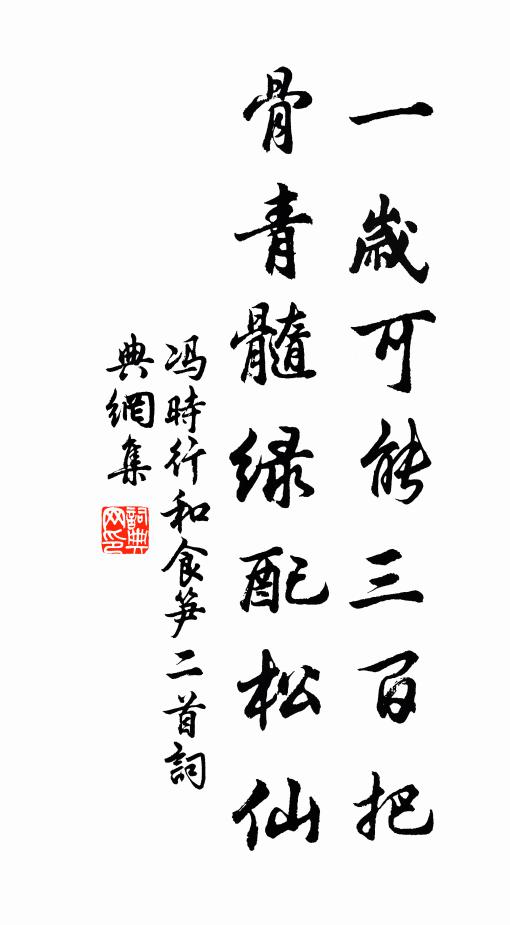 一歲可能三百把
骨青髓绿配松仙
冯時行和食笋二首詞
典網集
詞典网印